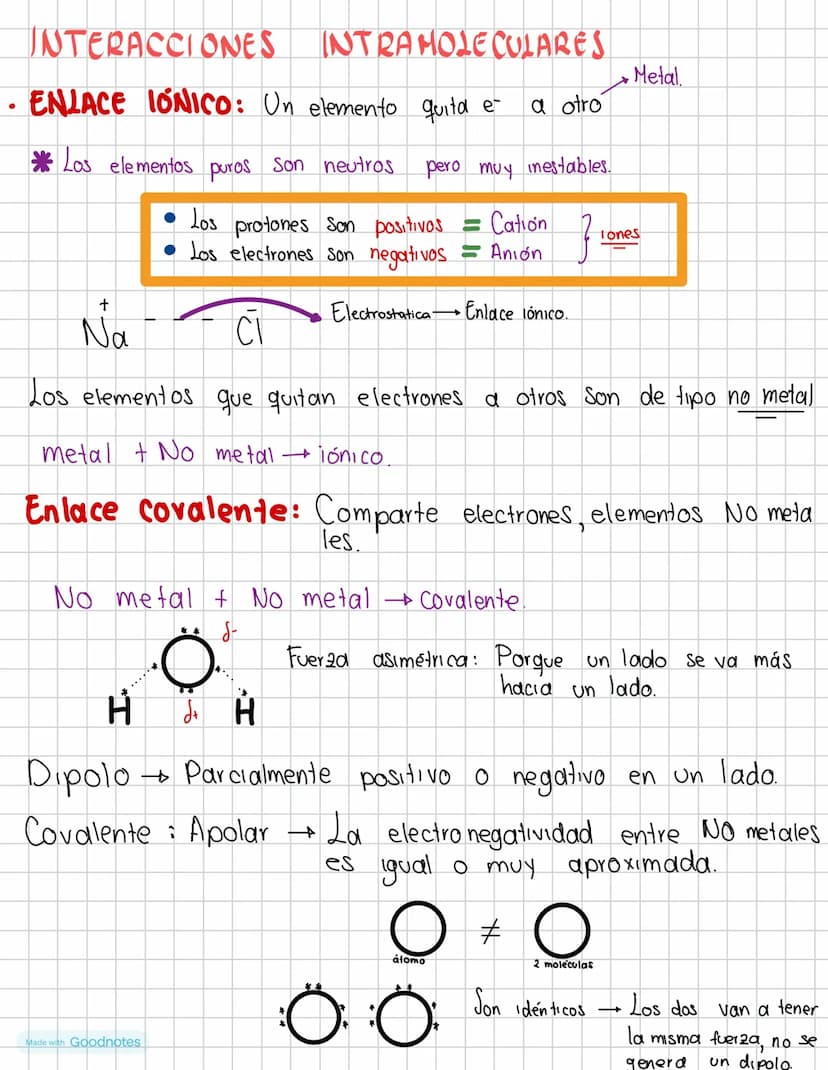 INTERACCIONES INTRAMOLECULARES
Metal.
• ENLACE IÓNICO: Un elemento quita e⁻ a otro
* Los elementos puros son neutros pero muy inestables.
• Los protones son positivos = Catión
• Los electrones son negativos = Anión
} iones
Na⁺ - - - Cl⁻ Electrostatica → Enlace iónico.
Los elementos que quitan electrones a otros son de tipo no metal
metal + No metal → iónico.
Enlace covalente: Comparte electrones, elementos No meta
les.
No metal + No metal → Covalente.
δ-
H δ+ H
Fuerza asimétrica: Porque un lado se va más
hacia un lado.
Dipolo → Parcialmente positivo o negativo en un lado.
Covalente : Apolar → La electronegatividad entre NO metales
es igual o muy aproximada.
O ≠ O
átomo 2 moleculas
O O Son idénticos → Los dos van a tener
la misma fuerza, no se
genera un dipolo.
Made with Goodnotes